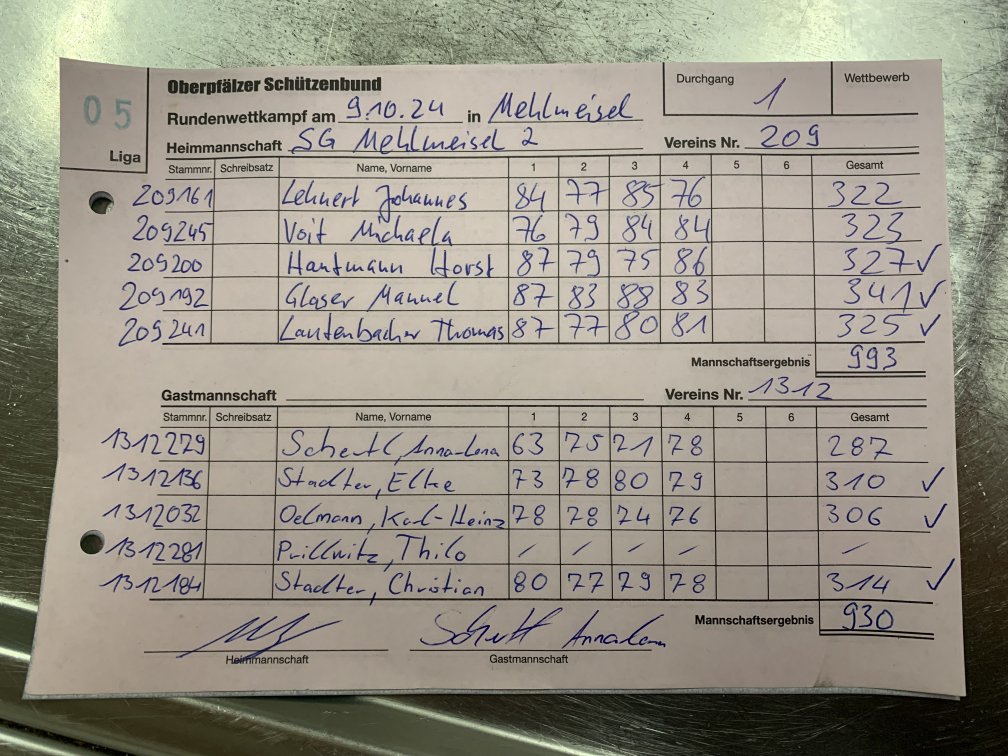 05
Liga
Oberpfälzer Schützenbund
Durchgang 1 Wettbewerb
Rundenwettkampf am 9.10.24 in Mehlmeisel
Heimmannschaft SG Mehlmeisel 2 Vereins Nr. 209
Stammnr. Schreibsatz Name, Vorname 1 2 3 4 5 6 Gesamt
209161 Lehnert Johannes 84 77 85 76 322
209245 Voit Michaela 76 79 84 84 323
209200 Hautmann Horst 87 79 75 86 327 ✓
209192 Glaser Manuel 87 83 88 83 341 ✓
209241 Lautenbacher Thomas 87 77 80 81 325 ✓
Mannschaftsergebnis 993
Gastmannschaft Vereins Nr. 1312
Stammnr. Schreibsatz Name, Vorname 1 2 3 4 5 6 Gesamt
1312279 Schertl, Anna-Lena 63 75 71 78 287
1312136 Stadter, Elke 73 78 80 79 310 ✓
1312032 Oelmann, Karl-Heinz 78 78 74 76 306 ✓
1312281 Prillwitz, Thilo / / / / /
1312184 Stadter, Christian 80 77 79 78 314 ✓
Mannschaftsergebnis 930
Schertl Annalena
Heimmannschaft Gastmannschaft